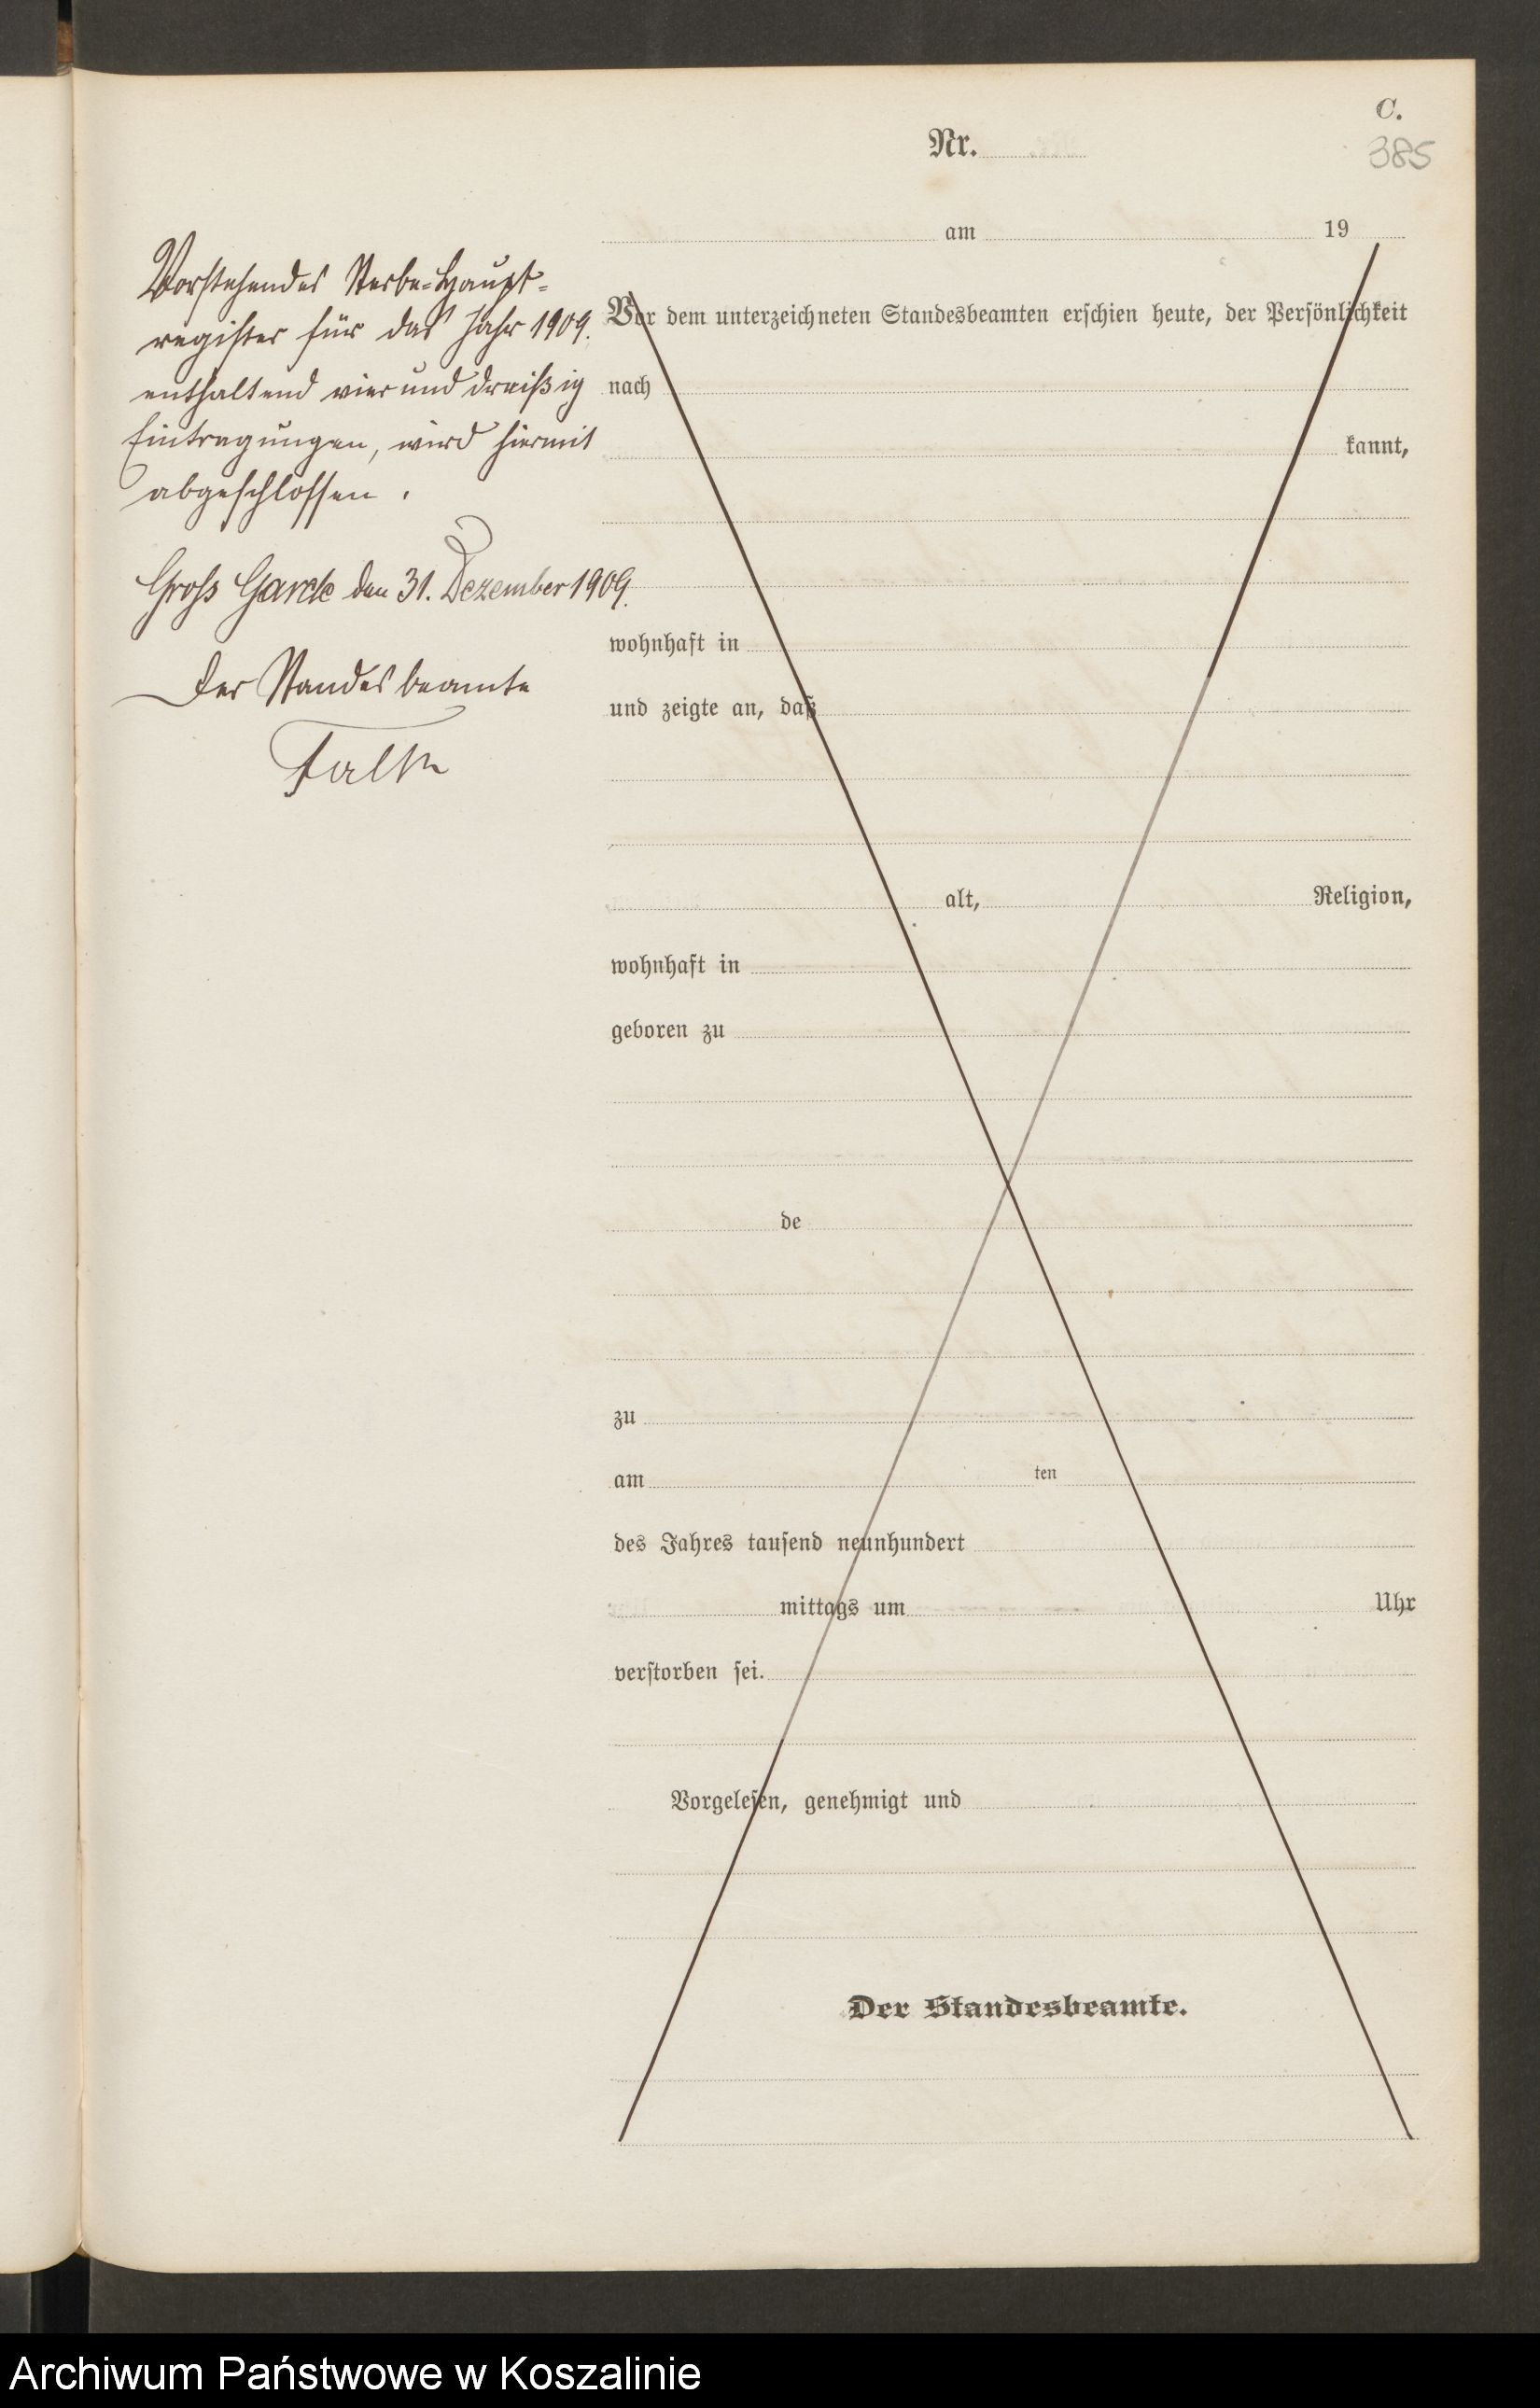 C.
385
Nr.
am 19
Vorstehendes Sterbe-Haupt-
register für das Jahr 1909
enthaltend vier und dreißig
Eintragungen, wird hiermit
abgeschlossen.
Gross Garde den 31. Dezember 1909.
Der Standesbeamte
Vor dem unterzeichneten Standesbeamten erschien heute, der Persönlichkeit
nach
kannt,
wohnhaft in
und zeigte an, daß
alt, Religion,
wohnhaft in
geboren zu
de
zu
am ten
des Jahres tausend neunhundert
mittags um Uhr
verstorben sei.
Vorgelesen, genehmigt und
Der Standesbeamte.
Archiwum Państwowe w Koszalinie